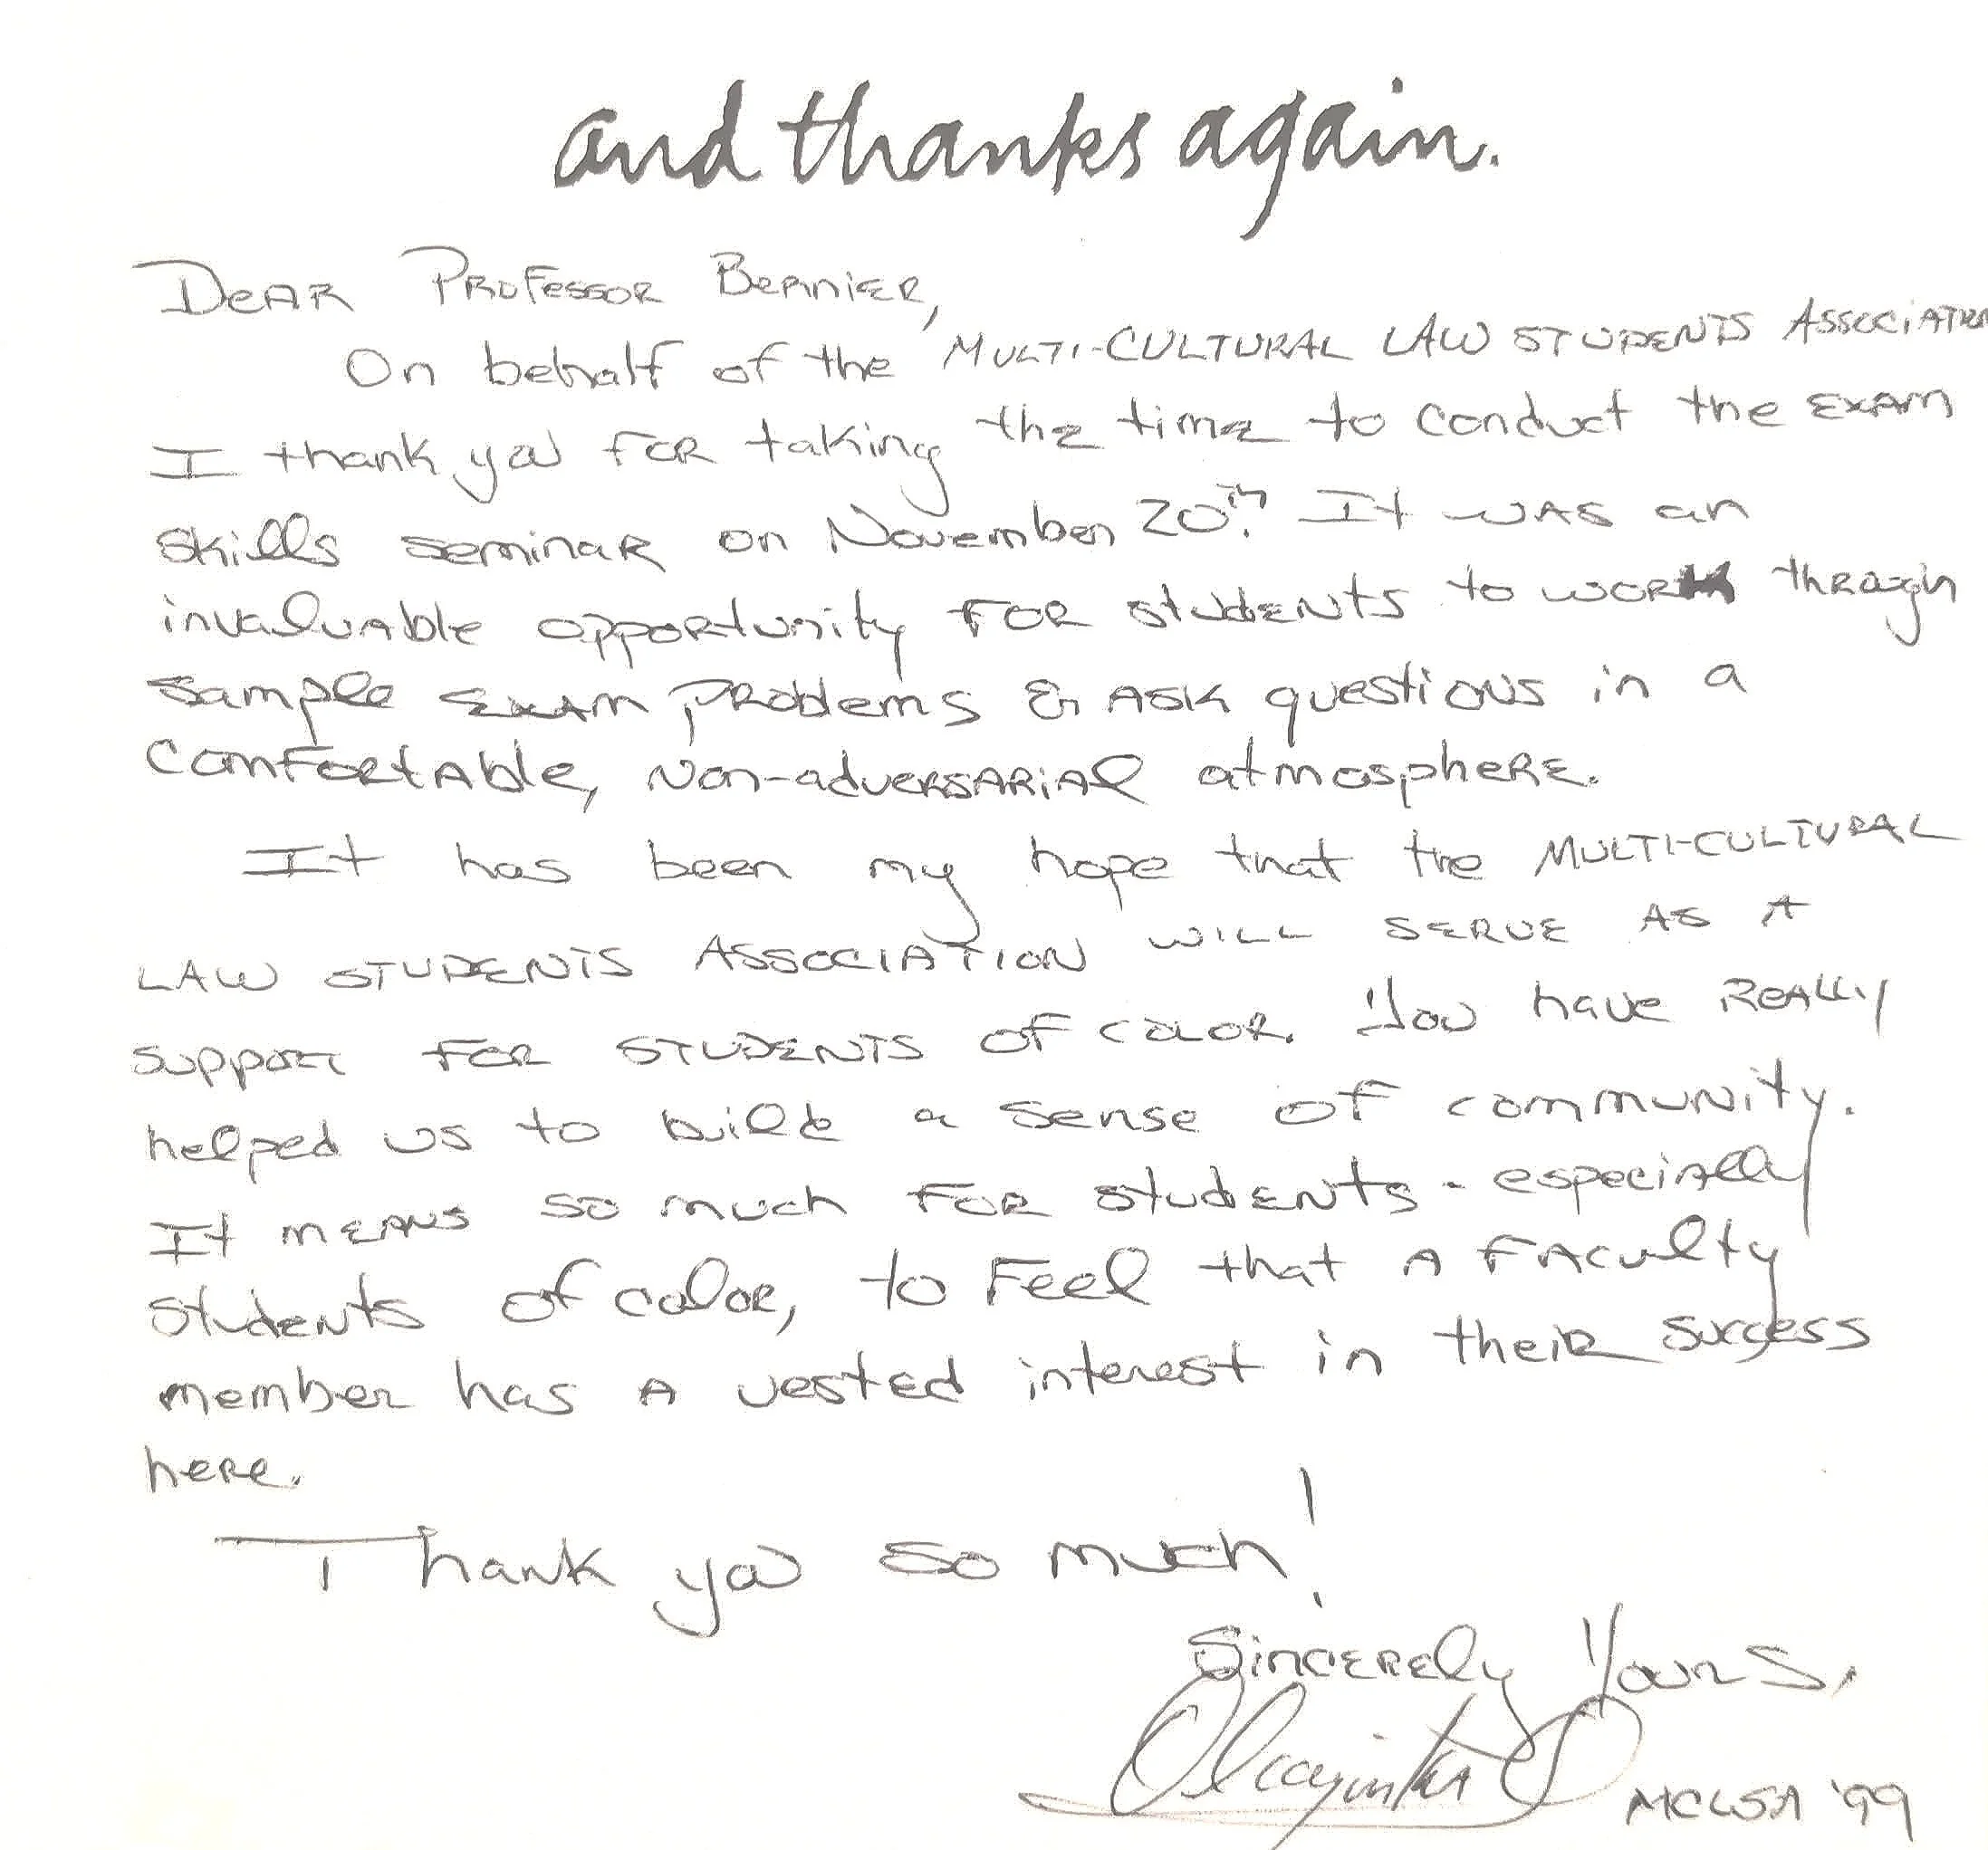 and thanks again.
Dear Professor Bernier,
On behalf of the MULTI-CULTURAL LAW STUDENTS ASSOCIATION
I thank you for taking the time to conduct the exam
skills seminar on November 20th. It was an
invaluable opportunity for students to work through
sample exam problems & ask questions in a
comfortable, non-adversarial atmosphere.
It has been my hope that the MULTI-CULTURAL
LAW STUDENTS ASSOCIATION will serve as a
support for students of color. You have really
helped us to build a sense of community.
It means so much for students - especially
students of color, to feel that a faculty
member has a vested interest in their success
here.
Thank you so much!
Sincerely Yours,
MCLSA '99